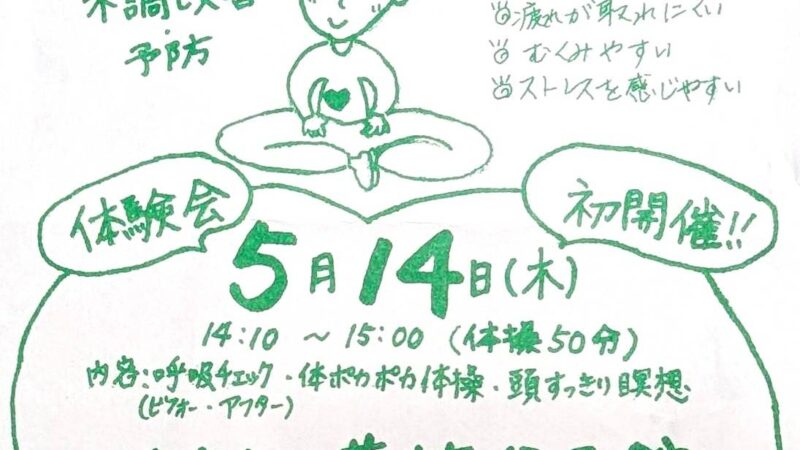 予防
疲れが取れにくい
むくみやすい
ストレスを感じやすい
体験会
初開催!!
5月14日(木)
14:10 ～ 15:00 (体操50分)
内容:呼吸チェック・体ポカポカ体操・頭すっきり瞑想
(ビフォー・アフター)